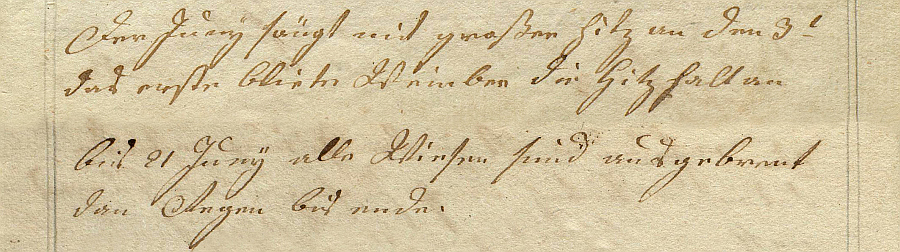 Der Juny fängt mit großer Hitz an den 3t
das erste bliete Weinber die Hitz halt an
bis 21 Juny alle Wiesen sind ausgebrent
dan Regen bis ende.